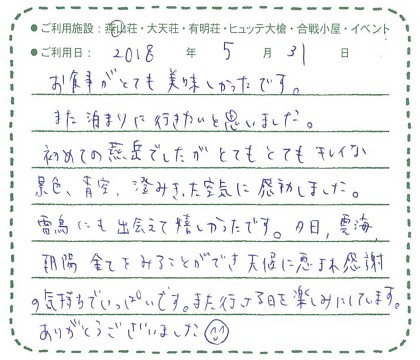 ●ご利用施設：燕山荘・大天荘・有明荘・ヒュッテ大槍・合戦小屋・イベント
●ご利用日： 2018 年 5 月 31 日
お食事がとても美味しかったです。
また泊まりに行きたいと思いました。
初めての燕岳でしたがとてもとてもキレイな
景色、青空、澄みきった空気に感動しました。
雷鳥にも出会えて嬉しかったです。夕日、雲海、
朝陽全てをみることができ天候に恵まれ感謝
の気持ちでいっぱいです。また行ける日を楽しみにしています。
ありがとうございました